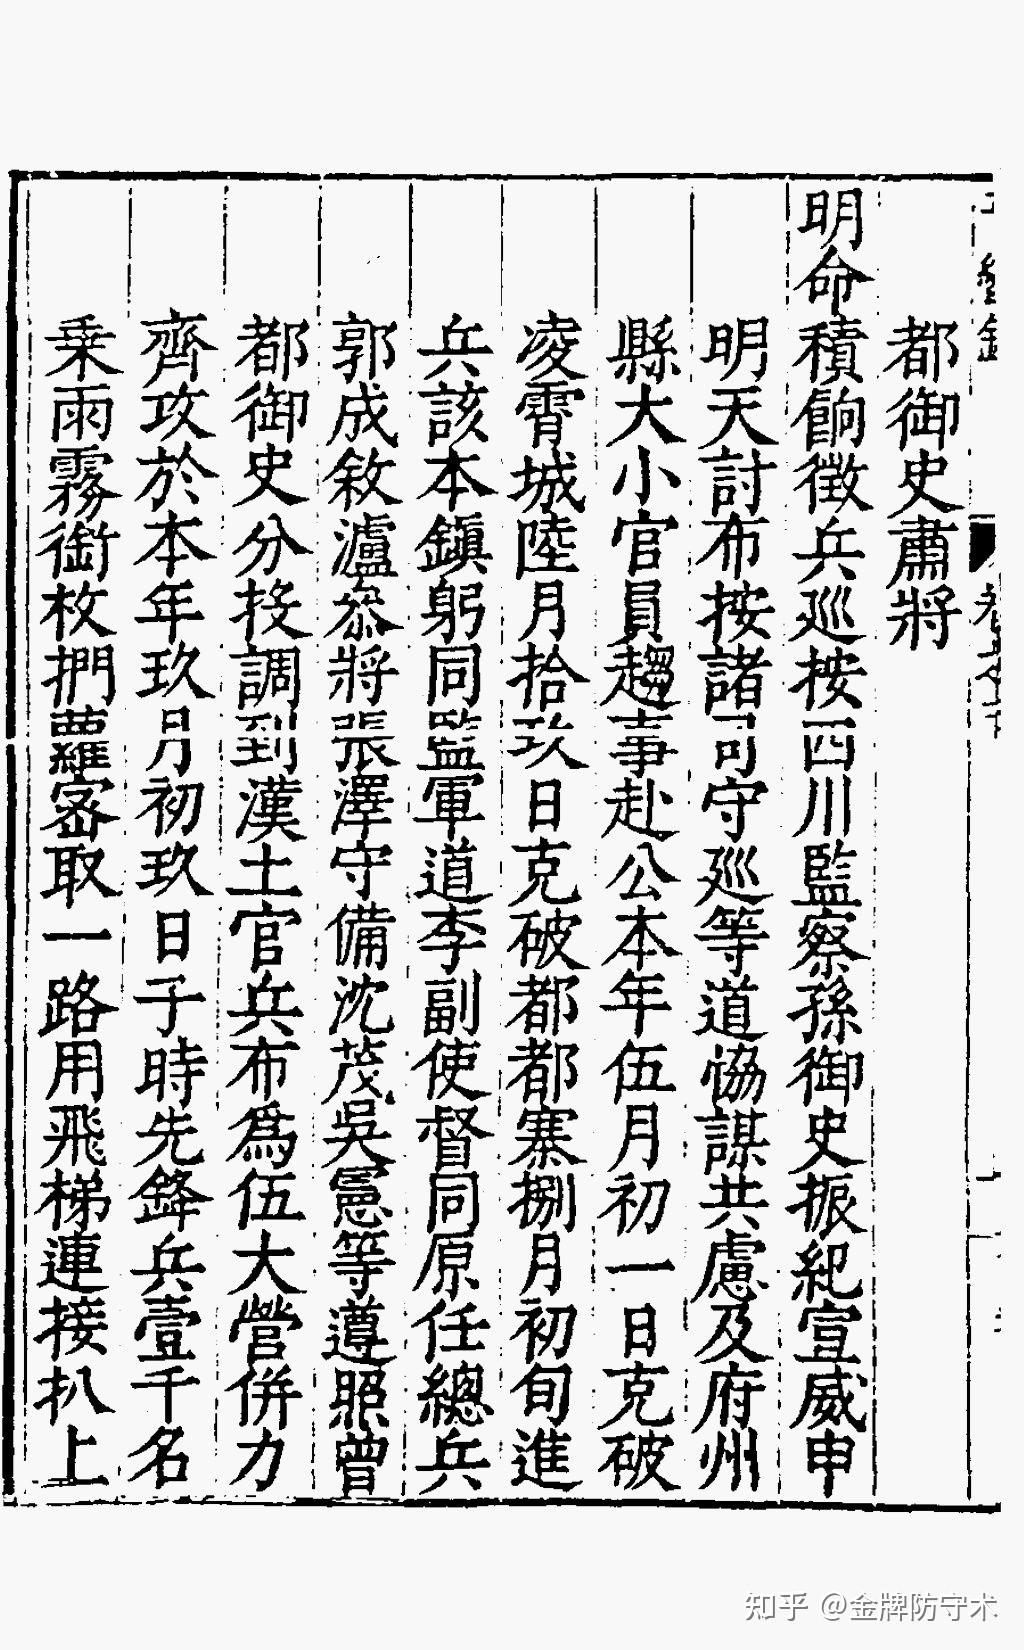 都御史肅將
明命積餉徵兵巡按四川監察孫御史振紀宣威申
明天討布按諸司守巡等道協謀共慮及府州
縣大小官員趨事赴公本年伍月初一日克破
凌霄城陸月拾玖日克破都都寨捌月初旬進
兵該本鎮躬同監軍道李副使督同原任總兵
郭成敘瀘叅將張澤守備沈茂吳憲等遵照曾
都御史分投調到漢土官兵布為伍大營併力
齊攻於本年玖月初玖日子時先鋒兵壹千名
乗雨霧銜枚捫蘿密取一路用飛梯連接扒上
知乎 @金牌防守术